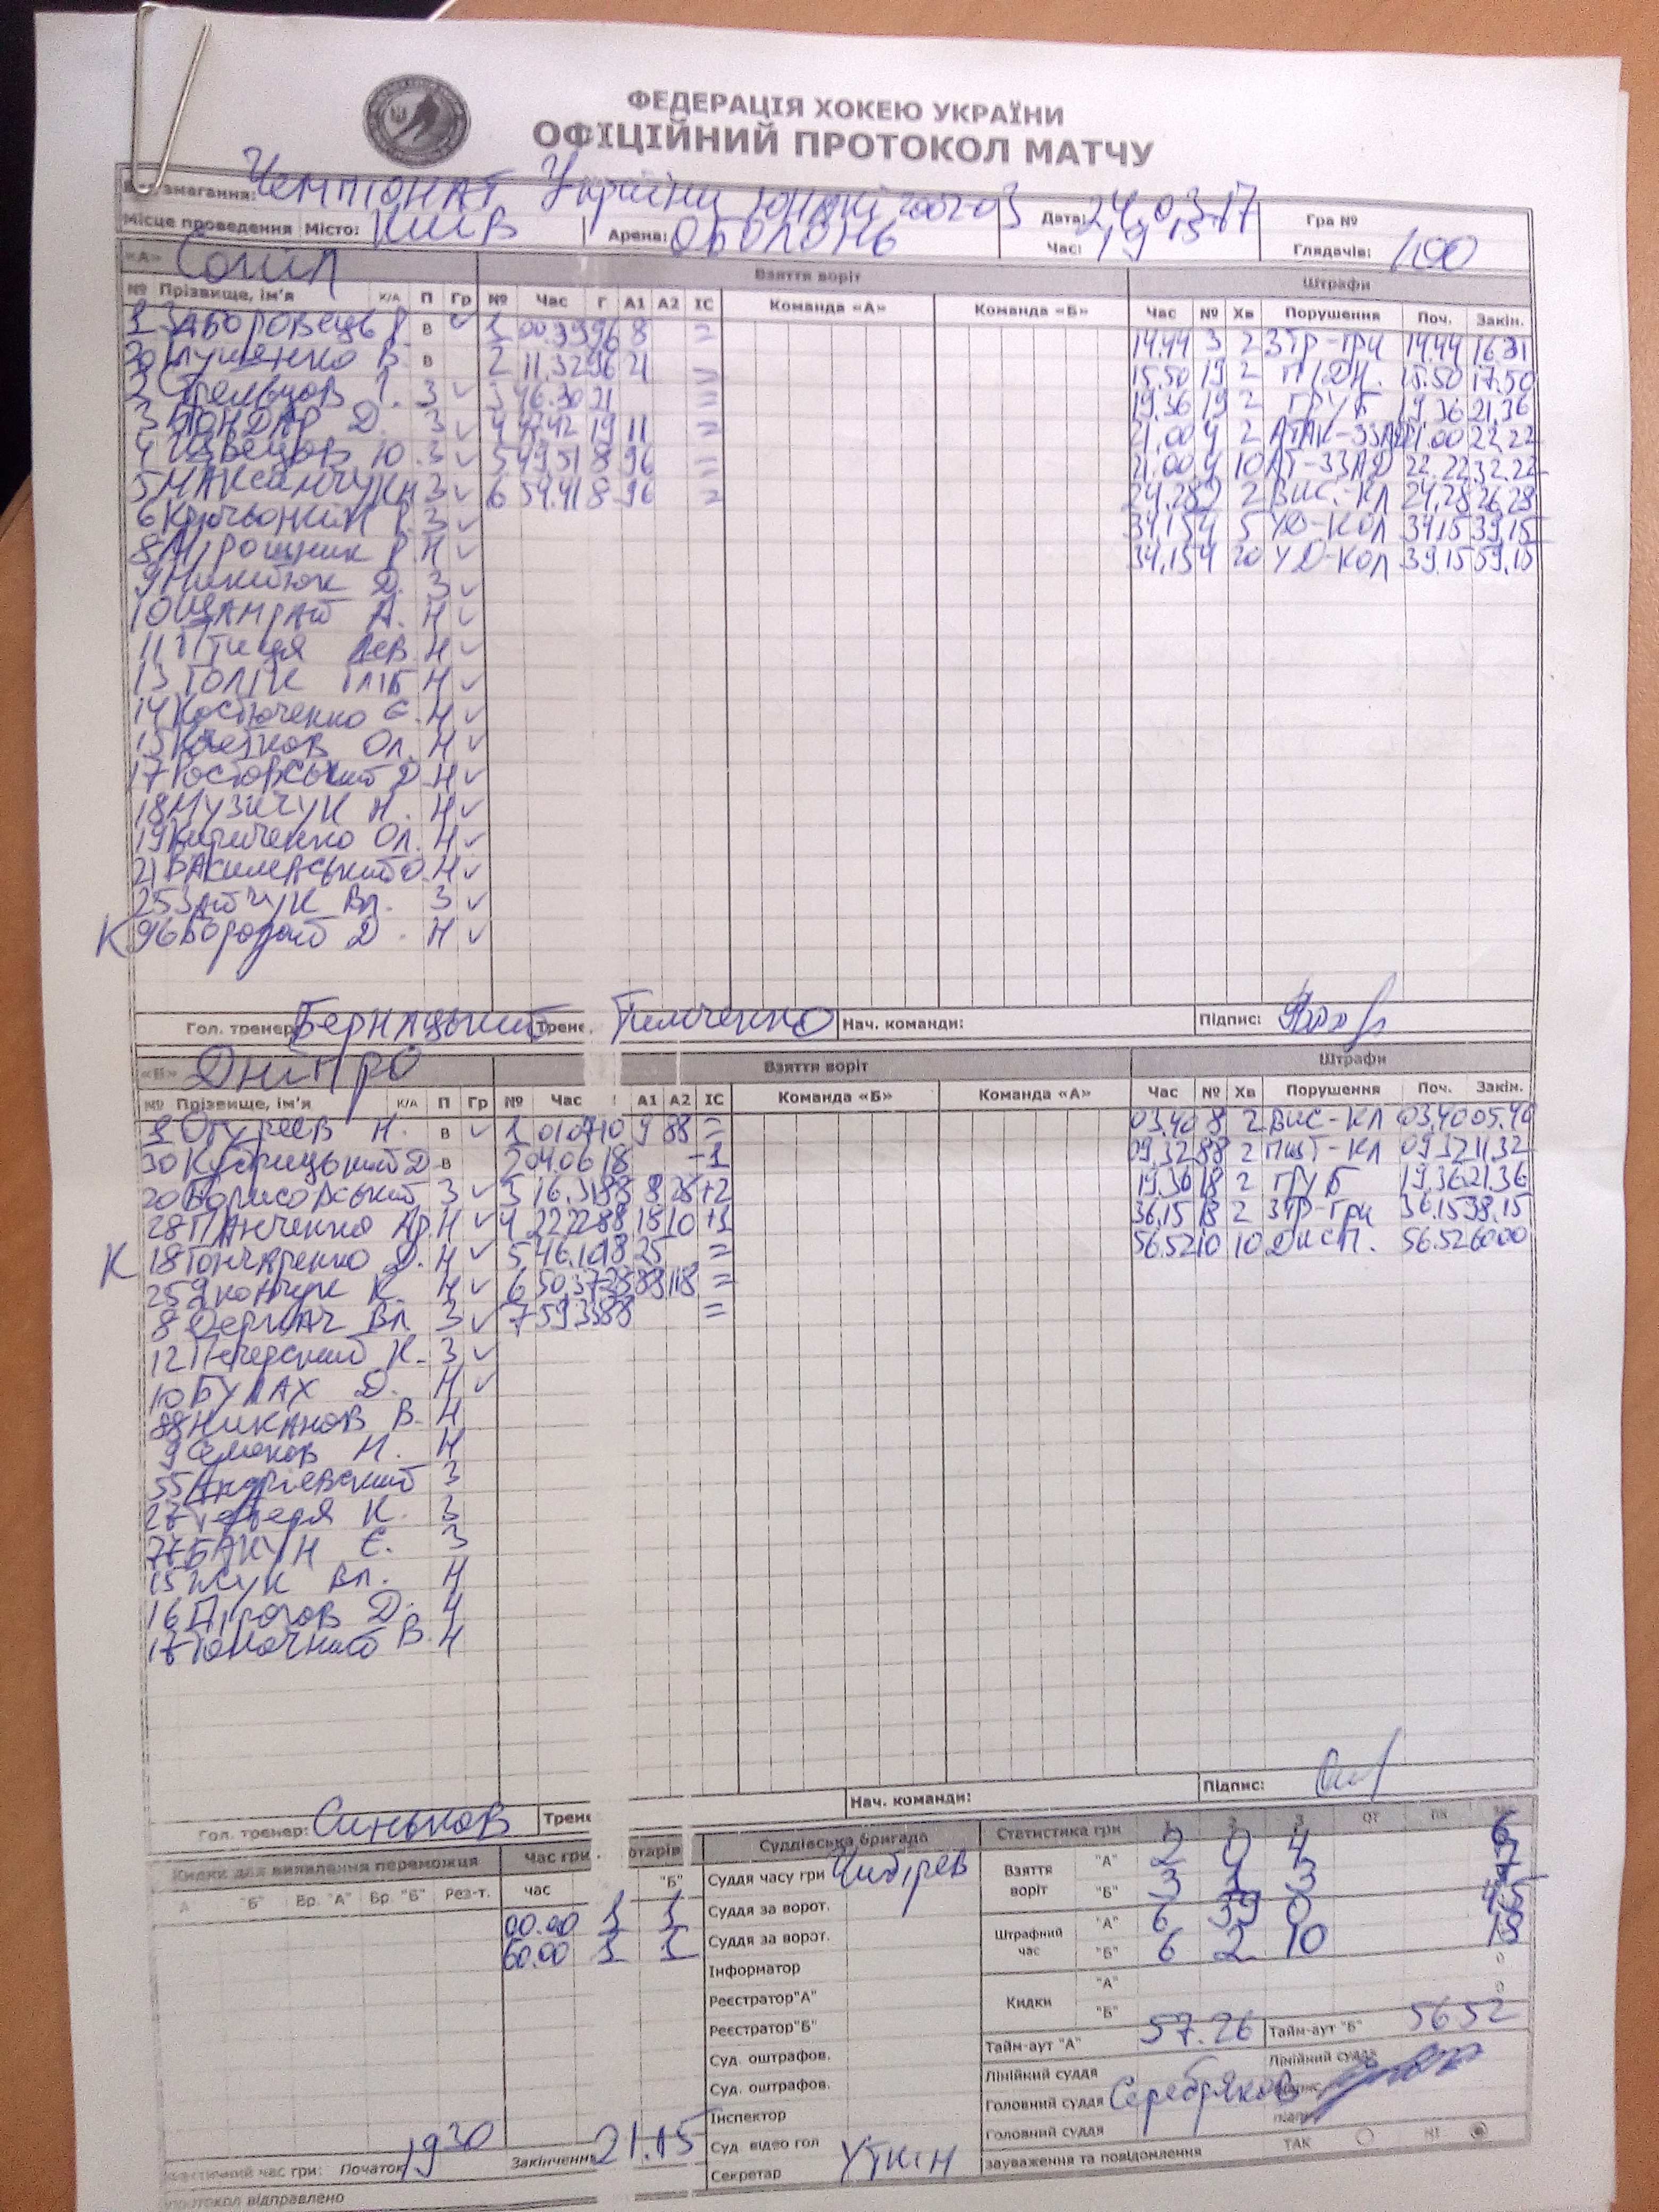 ФЕДЕРАЦІЯ ХОКЕЮ УКРАЇНИ
ОФІЦІЙНИЙ ПРОТОКОЛ МАТЧУ
змагання: Чемпіонат України юнаки Дата: 24.03.17 Гра №
Місце проведення Місто: Київ Арена: Оболонь Час: 19 15 Глядачів: 100
«А» Сокіл Взяття воріт Штрафи
№ Прізвище, ім'я К/А П Гр № Час Г А1 А2 ІС Команда «А» Команда «Б» Час № Хв Порушення Поч. Закін.
1 Заборовець Р. в 1 00.39 96 8 = 14.44 3 2 ЗТР-ГРИ 14.44 16.31
30 В. в 2 11.32 96 21 = 15.50 19 2 15.50 17.50
2 Стрельцов 3 3 46.30 21 = 19.36 19 2 ГРУБ 19.36 21.36
3 Бондар Д. 3 4 47.42 19 11 = 21.00 4 2 21.00 22.22
4 Швецов Ю. 3 5 49.51 8 96 = 21.00 4 10 22.22 32.22
5 Максимчук 3 6 54.41 8 96 = 24.28 2 2 ВИС-КЛ 24.28 26.28
6 3 34.15 4 5 УД-КОЛ 34.15 39.15
8 Мірошник Р. Н 34.15 4 20 УД-КОЛ 39.15 59.15
9 Никитюк Д. 3
10 А. Н
11 Птиця Лев Н
13 Голік Гліб Н
14 Костюченко Є. Н
15 Ол. Н
17 Д. Н
18 Музичук Н. Н
19 Кириченко Ол. Н
21 Василевський О. Н
25 Зайчук Вл. 3
К 96 Бородай Д. Н
Гол. тренер: Бернацький Трене Тимченко Нач. команди: Підпис:
«Б» Дніпро Взяття воріт Штрафи
№ Прізвище, ім'я К/А П Гр № Час А1 А2 ІС Команда «Б» Команда «А» Час № Хв Порушення Поч. Закін.
1 Огуреєв Н. в 1 01.07 10 9 88 = 03.40 8 2 ВИС-КЛ 03.40 05.40
30 Кудрицький Д. в 2 04.06 18 -1 09.32 88 2 09.32 11.32
20 Борисовський 3 3 16.31 88 8 28 +2 19.36 18 2 ГРУБ 19.36 21.36
28 Панченко Н 4 22.22 88 18 10 +1 36.15 18 2 ЗТР-ГРИ 36.15 38.15
К 18 Гончаренко Д. Н 5 46.10 18 25 = 56.52 10 10 ДИСП. 56.52 60.00
25 К. Н 6 50.37 28 88 18 =
8 Деркач Вл 3 7 59.33 88 =
12 Печерский К. 3
10 Булах Д. Н
88 Никанов В. Н
9 Н. Н
55 Андрієвский 3
27 К. 3
77 Бакун Є. 3
15 Жук Вл. Н
16 Пірогов Д. Н
17 Толочний В. Н
Гол. тренер: Синьков Трене Нач. команди: Підпис:
Кидки для виявлення переможця Час гри отарів Суддівська бригада Статистика гри 1 2 3 ОТ ПК
"А" "Б" Вр. "А" Вр. "Б" Рез-т. час "Б" Суддя часу гри Чибірев Взяття воріт "А" 2 0 4 6
00.00 1 1 Суддя за ворот. "Б" 3 1 3 7
60.00 1 1 Суддя за ворот. Штрафний час "А" 6 39 0 45
Інформатор "Б" 6 2 10 18
Реєстратор"А" Кидки "А" 0
Реєстратор"Б" "Б" 0
Суд. оштрафов. Тайм-аут "А" 57.26 Тайм-аут "Б" 56 52
Суд. оштрафов. Лінійний суддя Лінійний суддя
Інспектор Головний суддя Серебряков
Суд. відео гол Головний суддя
Фактичний час гри: Початок 19 30 Закінчення 21.15 Секретар Уткін зауваження та повідомлення ТАК НІ
протокол відправлено